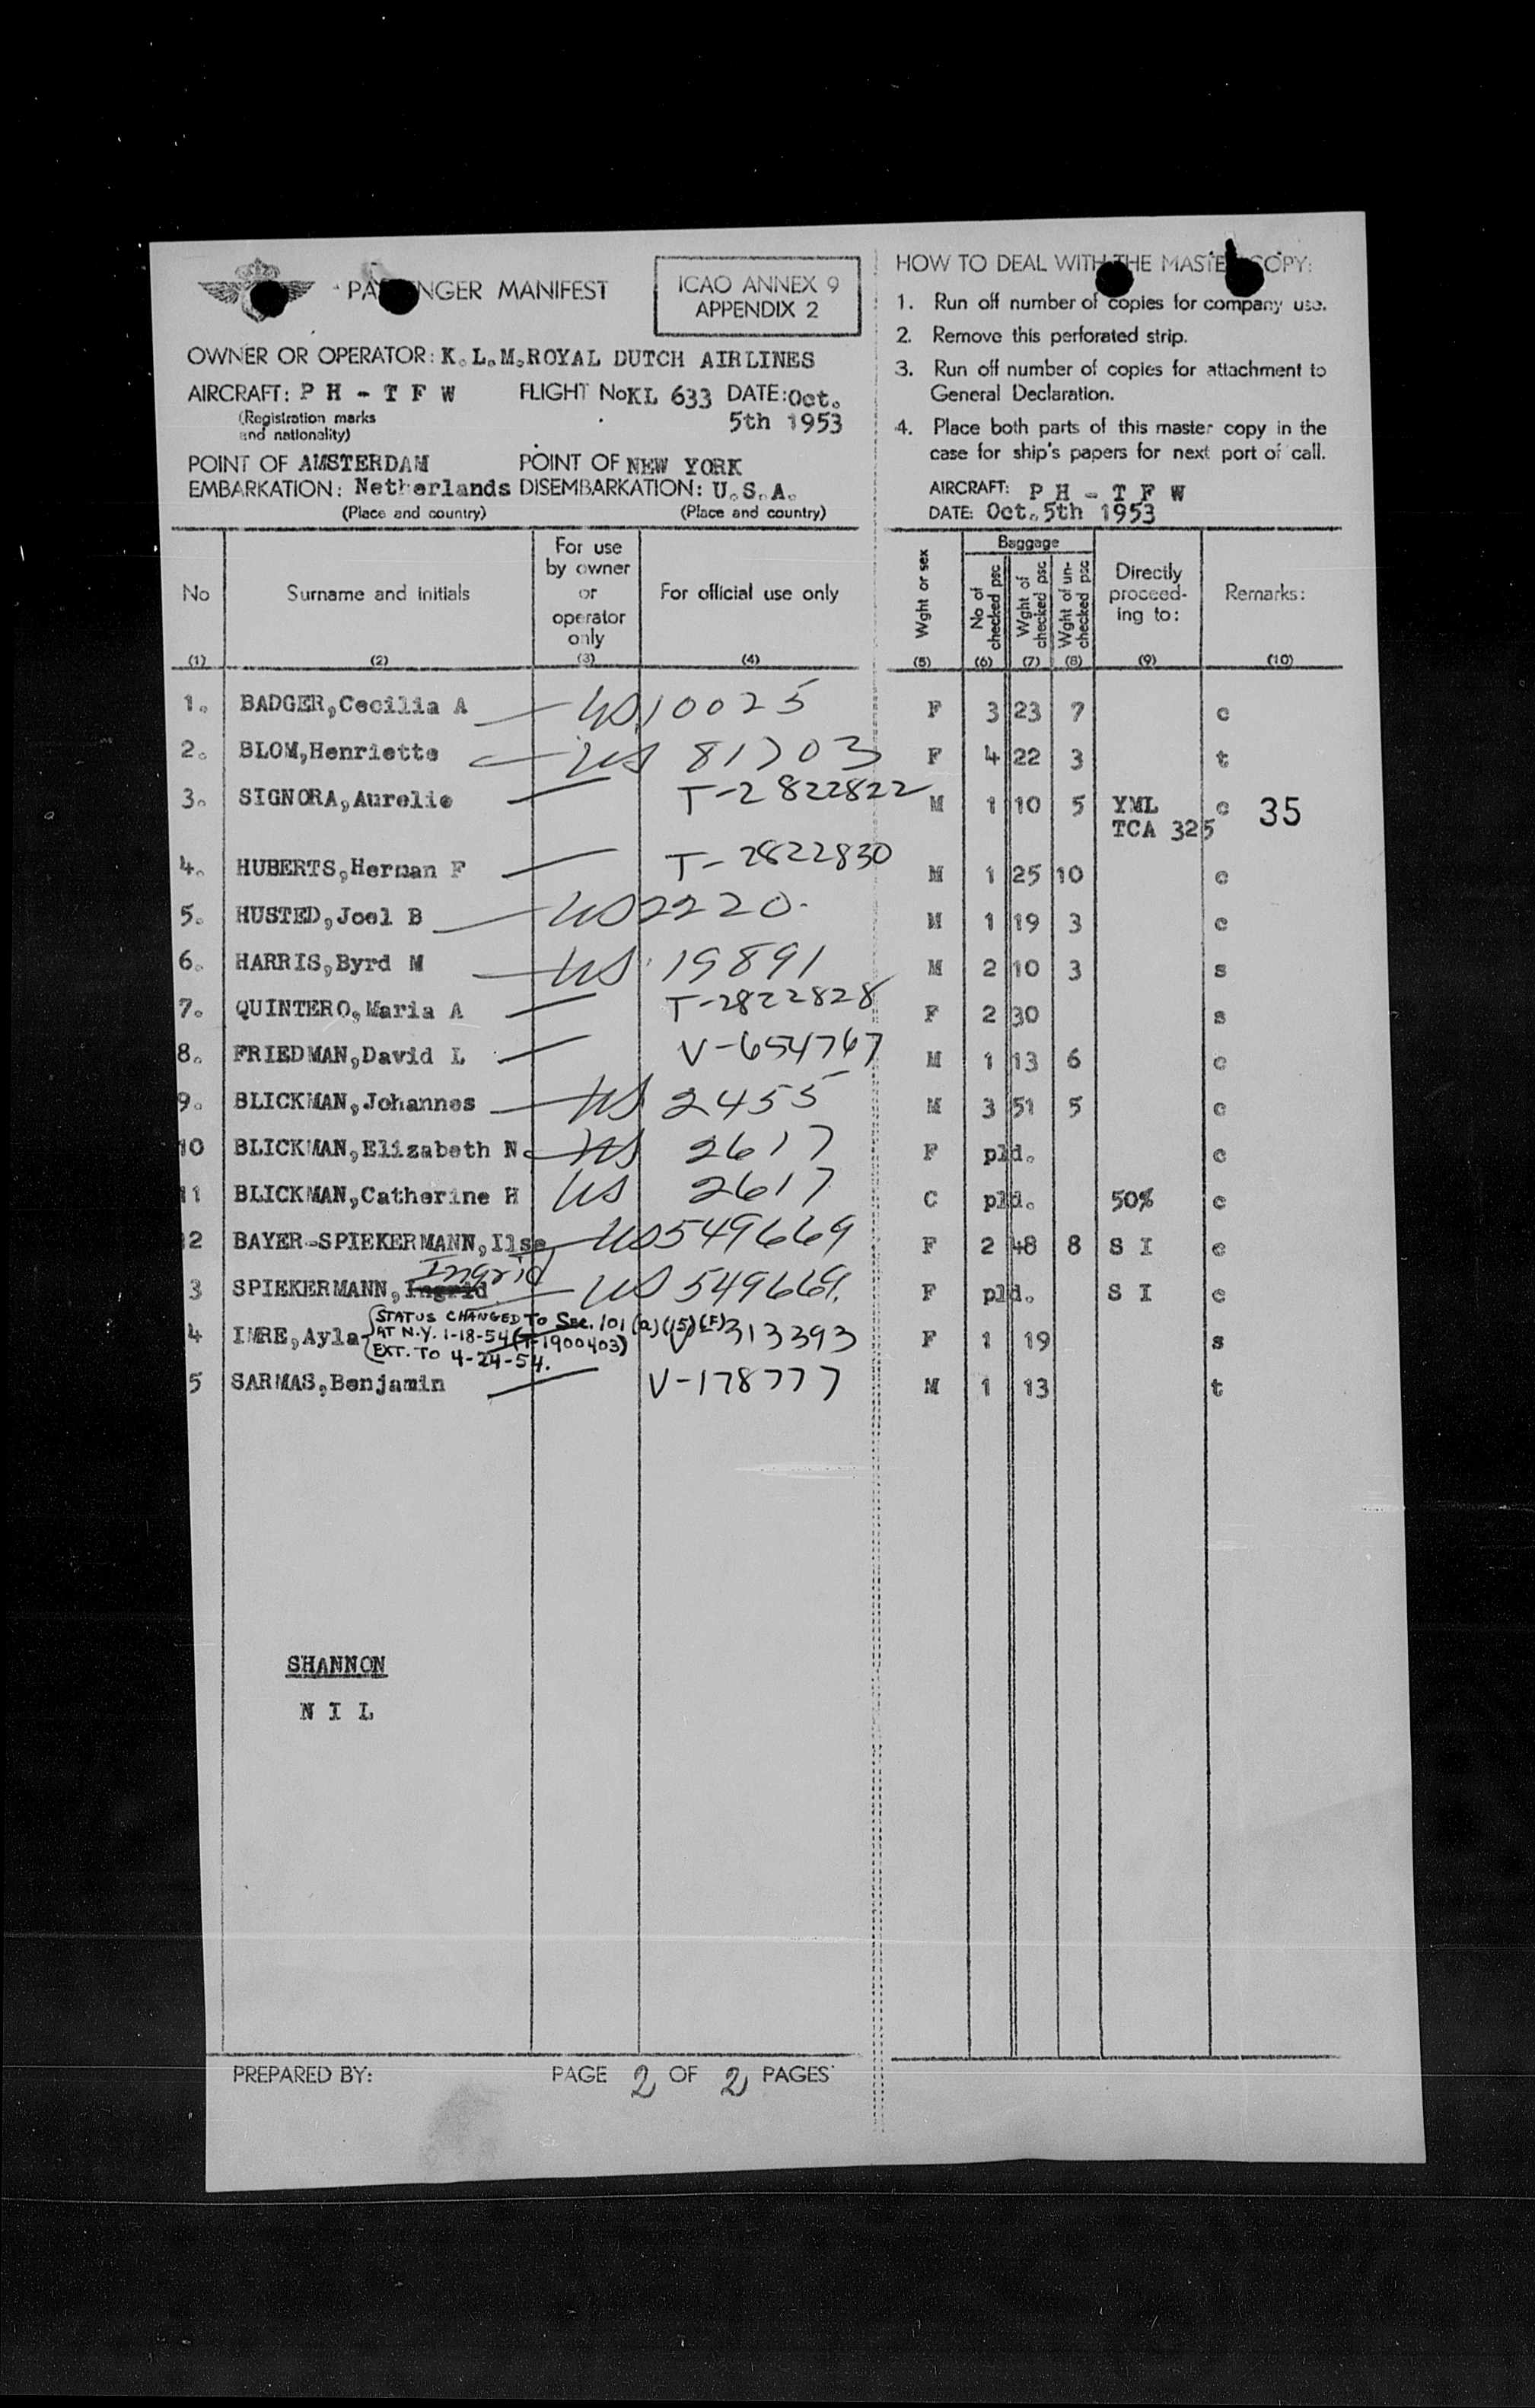 PASSENGER MANIFEST
ICAO ANNEX 9
APPENDIX 2
OWNER OR OPERATOR: K.L.M.ROYAL DUTCH AIRLINES
AIRCRAFT: P H - T F W FLIGHT No KL 633 DATE: Oct.
(Registration marks
and nationality)
5th 1953
POINT OF AMSTERDAM POINT OF NEW YORK
EMBARKATION: Netherlands DISEMBARKATION: U.S.A.
(Place and country) (Place and country)
HOW TO DEAL WITH THE MASTER COPY:
1. Run off number of copies for company use.
2. Remove this perforated strip.
3. Run off number of copies for attachment to
General Declaration.
4. Place both parts of this master copy in the
case for ship's papers for next port of call.
AIRCRAFT: P H - T F W
DATE: Oct.5th 1953
No Surname and initials For use by owner or operator only For official use only Wght or sex Baggage No of checked psc Wght of checked psc Wght of un-checked psc Directly proceed-ing to: Remarks:
(1) (2) (3) (4) (5) (6) (7) (8) (9) (10)
1. BADGER,Cecilia A US 10025 F 3 23 7 c
2. BLOM,Henriette US 81703 F 4 22 3 t
3. SIGNORA,Aurelie T-2822822 M 1 10 5 YML c 35
TCA 325
4. HUBERTS,Herman F T-2822830 M 1 25 10 c
5. HUSTED,Joel B US 2220. M 1 19 3 c
6. HARRIS,Byrd M US 19891 M 2 10 3 s
7. QUINTERO,Maria A T-2822828 F 2 30 s
8. FRIEDMAN,David L V-654767 M 1 13 6 c
9. BLICKMAN,Johannes US 2455 M 3 51 5 c
10 BLICKMAN,Elizabeth N US 2617 F pld. c
11 BLICKMAN,Catherine H US 2617 C pld. 50% c
12 BAYER-SPIEKERMANN,Ilse US 549669 F 2 48 8 S I c
Ingrid
3 SPIEKERMANN,Ingrid US 549669. F pld. S I c
STATUS CHANGED TO Sec. 101 (a)(15)(F)
4 IMRE,Ayla AT N.Y. 1-18-54 (T-1900403) V 313393 F 1 19 s
EXT. TO 4-24-54.
5 SARMAS,Benjamin V-178777 M 1 13 t
SHANNON
N I L
PREPARED BY: PAGE 2 OF 2 PAGES